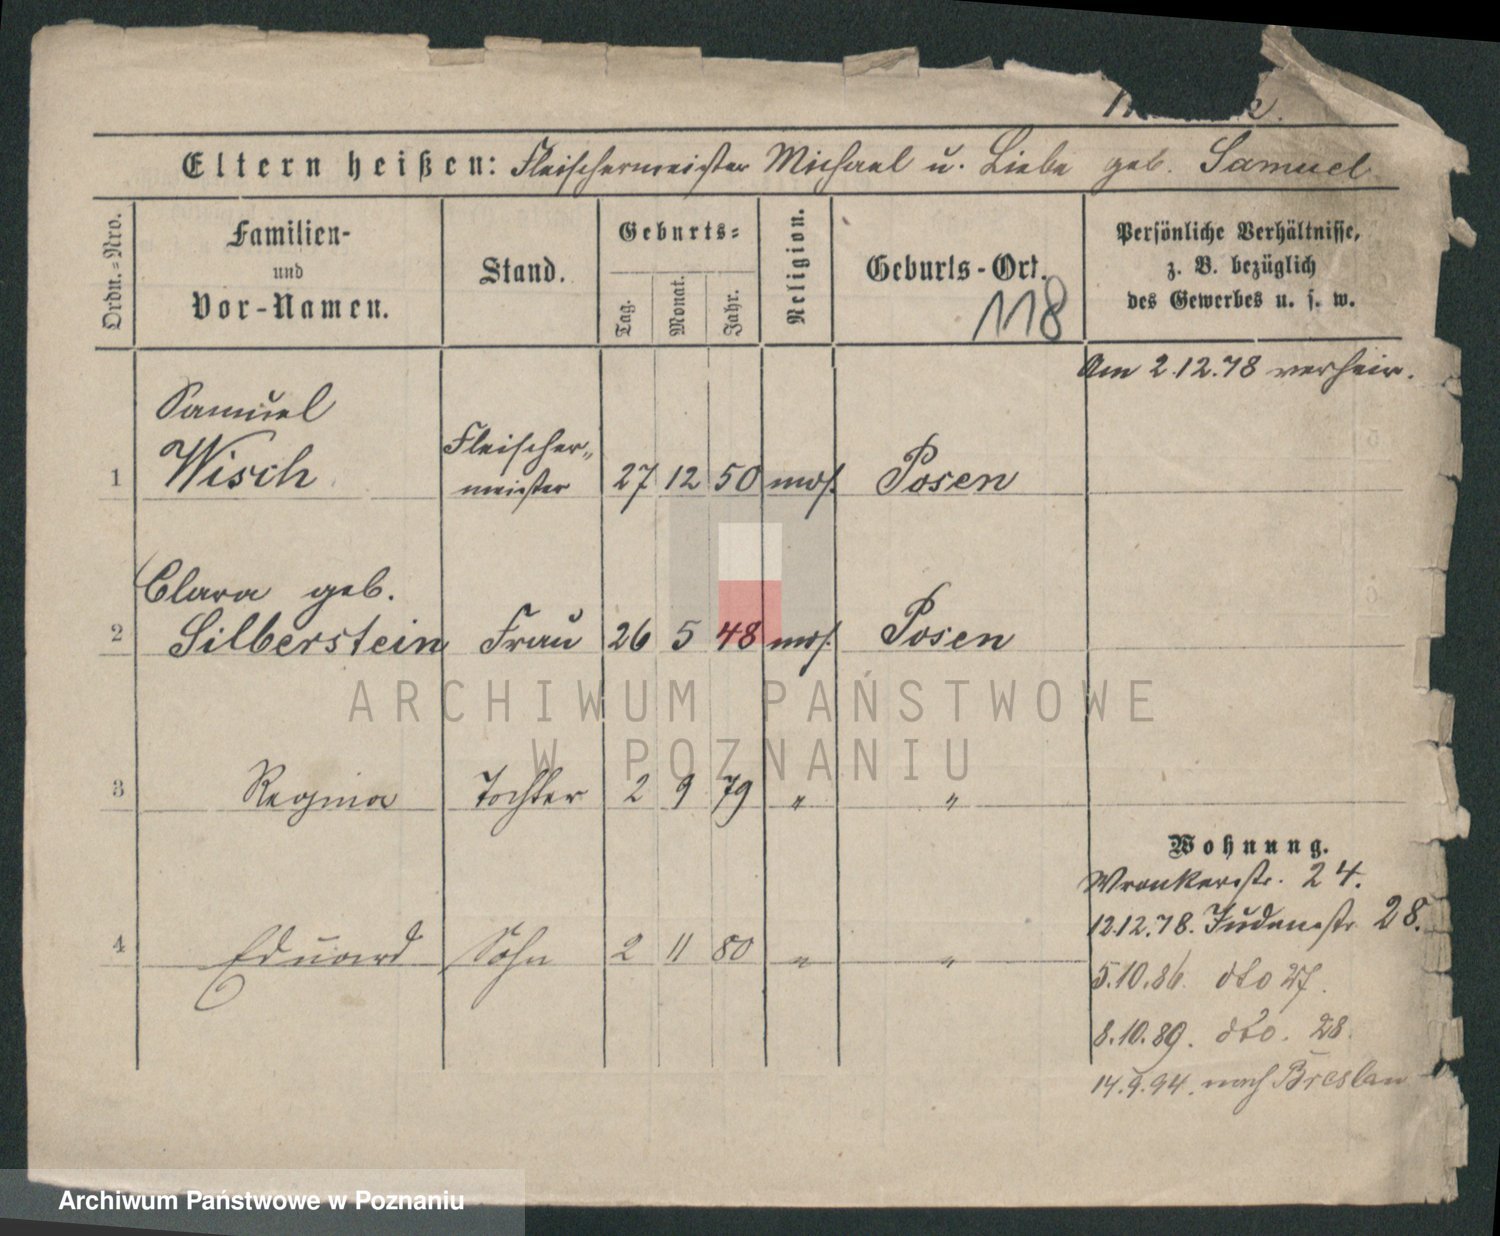 Eltern heißen: Fleischermeister Michael u. Liebe geb. Samuel
Ordn.=Nro.
Familien-
und
Vor-Namen.
Stand.
Geburts=
Tag.
Monat.
Jahr.
Religion.
Geburts-Ort.
118
Persönliche Verhältnisse,
z. B. bezüglich
des Gewerbes u. s. w.
Am 2.12.78 verheir.
Samuel
1 Wisch Fleischer-
meister 27 12 50 mos. Posen
Clara geb.
2 Silberstein Frau 26 5 48 mos. Posen
3 Regina Tochter 2 9 79 " "
4 Eduard Sohn 2 11 80 " "
Wohnung.
Wronkerstr. 24.
12.12.78. Judenstr. 28.
5.10.86. dto 27.
8.10.89. dto. 28.
14.9.94. nach Breslau
ARCHIWUM PAŃSTWOWE
W POZNANIU
Archiwum Państwowe w Poznaniu